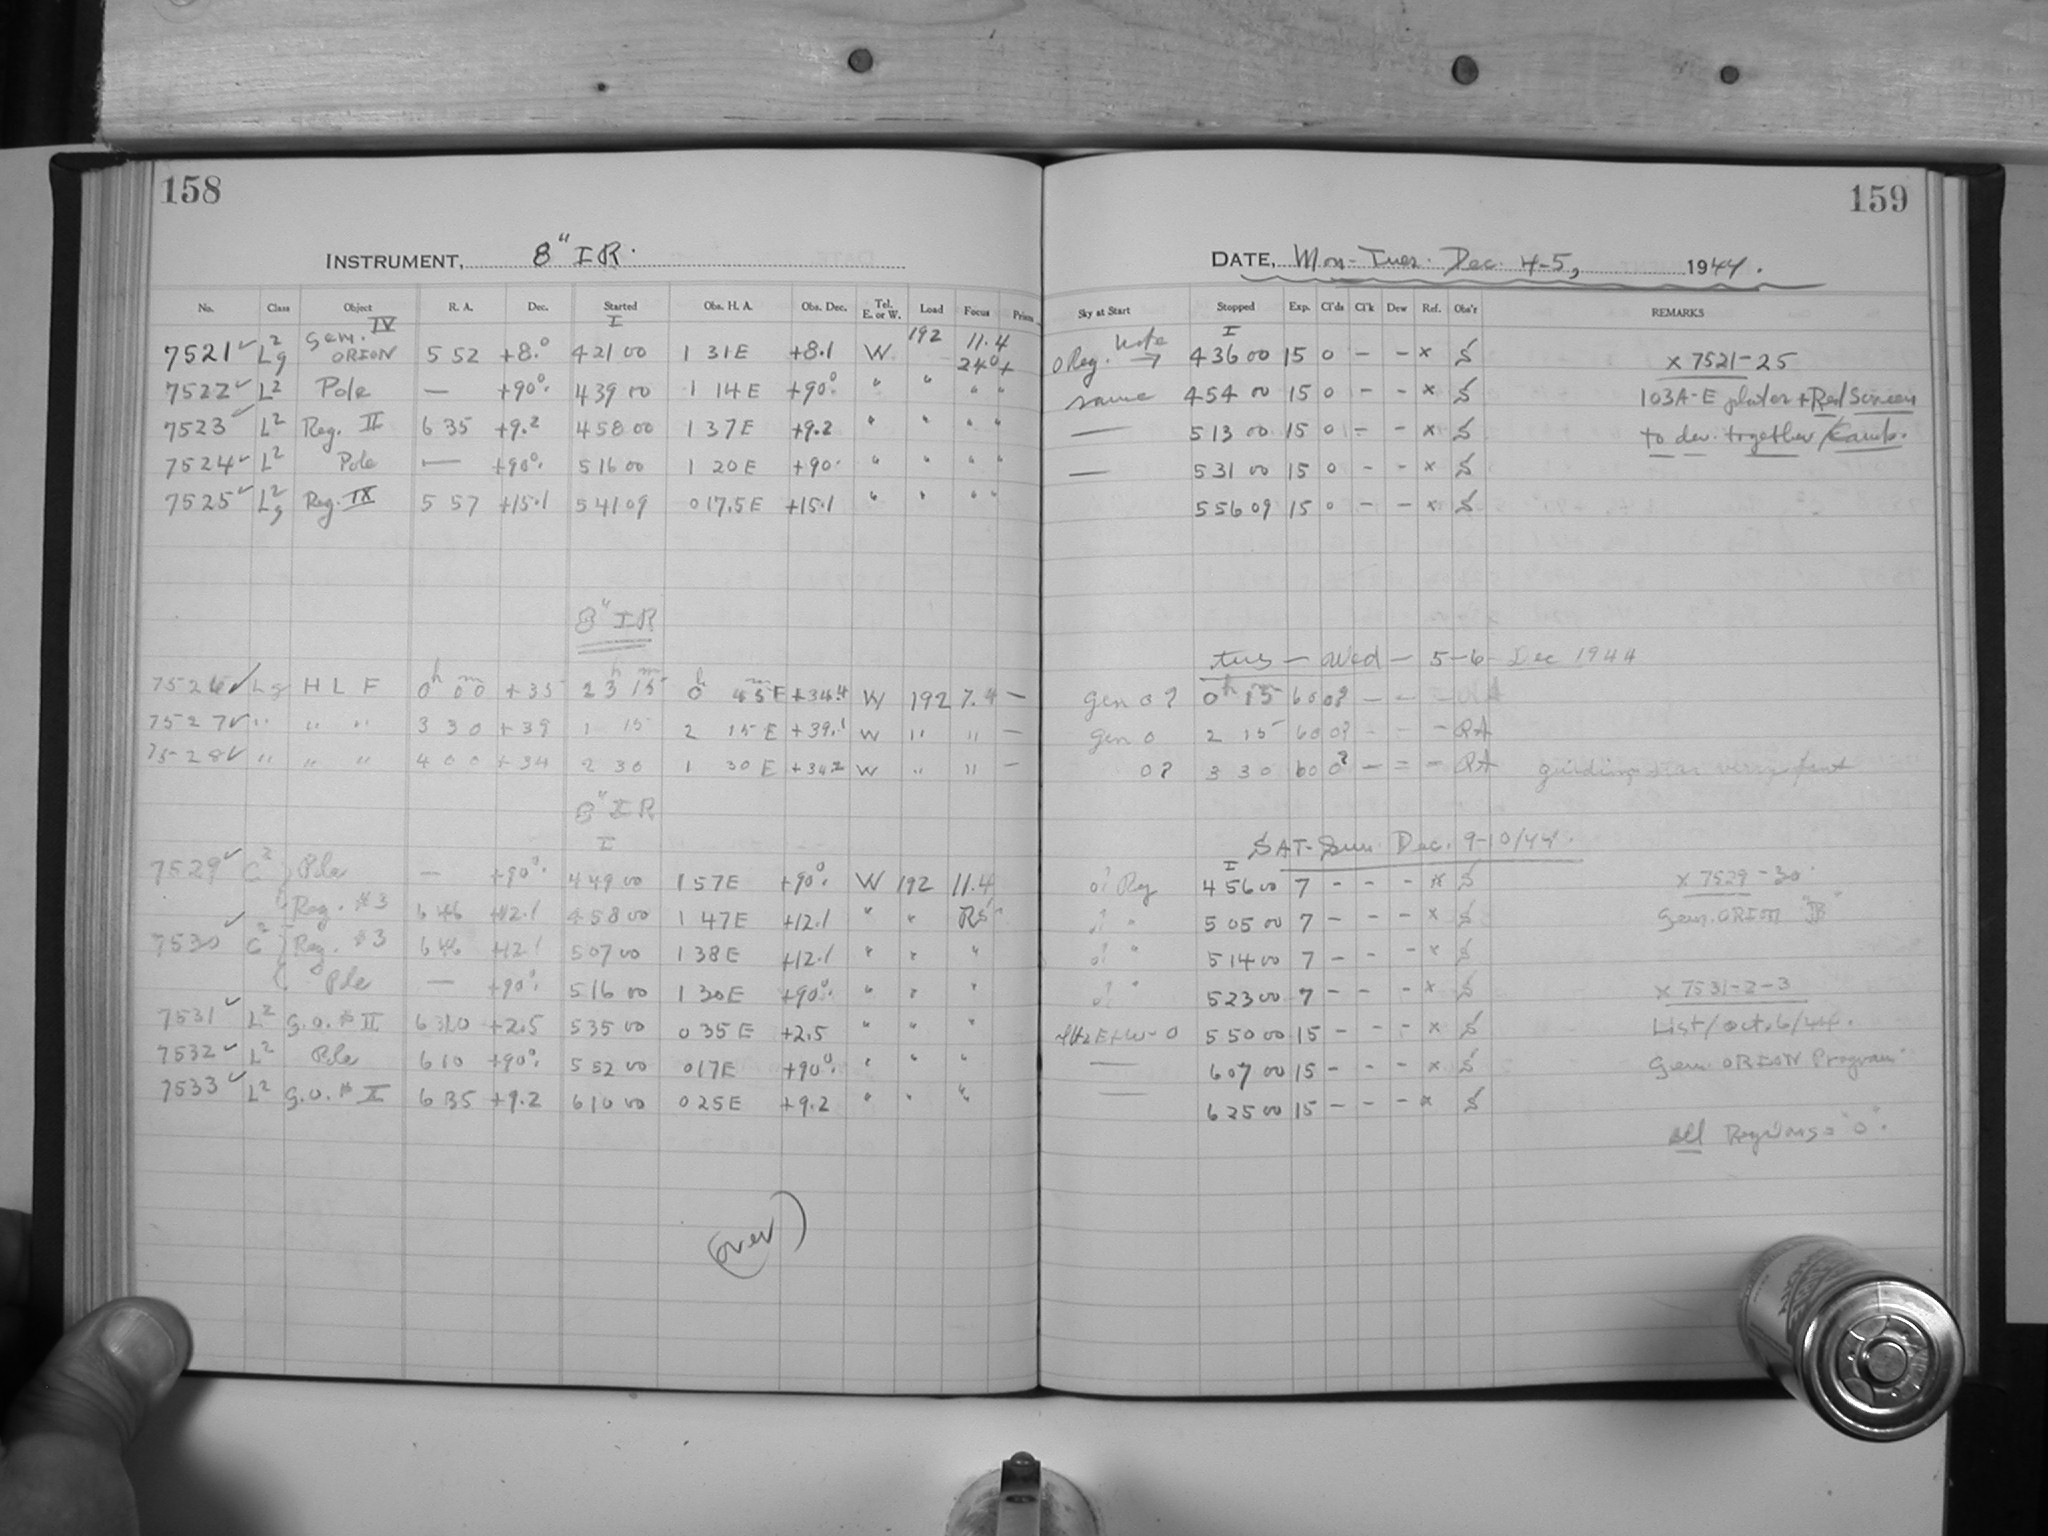 158
INSTRUMENT, 8" IR.
No. Class Object R. A. Dec. Started Obs. H. A. Obs. Dec. Tel. E. or W. Load Focus Prism
I
7521 ✓ L² g Gem. IV ORION 5 52 +8.° 4 21 00 1 31 E +8.1 W 192 11.4 24° +
7522 ✓ L² Pole — +90° 4 39 00 1 14 E +90° " " " "
7523 ✓ L² Reg. II 6 35 +9.2 4 58 00 1 37 E +9.2 " " " "
7524 ✓ L² Pole — +90° 5 16 00 1 20 E +90° " " " "
7525 ✓ L² g Reg. IX 5 57 +15.1 5 41 09 0 17.5 E +15.1 " " " "
8" IR
7526 ✓ Lg H L F 0h 00m +35 23h 15m 0h 45m E +34.4 W 192 7.4 —
7527 ✓ " " " 3 30 +39 1 15 2 15 E +39.1 W " " —
7528 ✓ " " " 4 00 +34 2 30 1 30 E +34.2 W " " —
8" IR
I
7529 ✓ C² Pole — +90° 4 49 00 1 57 E +90° W 192 11.4
Reg. #3 6 46 +12.1 4 58 00 1 47 E +12.1 " "
7530 ✓ C² Reg. #3 6 46 +12.1 5 07 00 1 38 E +12.1 " " "
Pole — +90° 5 16 00 1 30 E +90° " " "
7531 ✓ L² G.O. # II +2.5 5 35 00 0 35 E +2.5 " " "
7532 ✓ L² Pole 6 10 +90° 5 52 00 0 17 E +90° " " "
7533 ✓ L² G.O. # 6 35 +9.2 6 10 00 0 25 E +9.2 " " "
(over)
159
DATE, Mon-Tues. Dec. 4-5, 1944.
Sky at Start Stopped Exp. Cl'ds Cl'k Dew Ref. Obs'r REMARKS
I
0 Reg. Note → 4 36 00 15 0 — — x S x 7521-25
same 4 54 00 15 0 — — x S 103A-E plates + Red Screen
— 5 13 00 15 0 — — x S to dev. together / Camb.
— 5 31 00 15 0 — — x S
5 56 09 15 0 — — x S
tues — Wed — 5-6 — Dec 1944
gen 0? 0h 15m 60 0? — — — RA
gen 0 2 15 60 0? — — — RA
0? 3 30 60 0? — = — RA guiding star very faint
SAT-Sun. Dec. 9-10/44.
I
0? Reg 4 56 00 7 — — — x S x 7529-30
" 5 05 00 7 — — — x S Gem. ORION
0? " 5 14 00 7 — — — x S
" 5 23 00 7 — — — x S x 7531-2-3
0 5 50 00 15 — — — x S List/Oct. 6/44.
— 6 07 00 15 — — — x S Gem. ORION Program
— 6 25 00 15 — — — x S
All Regions = "0".